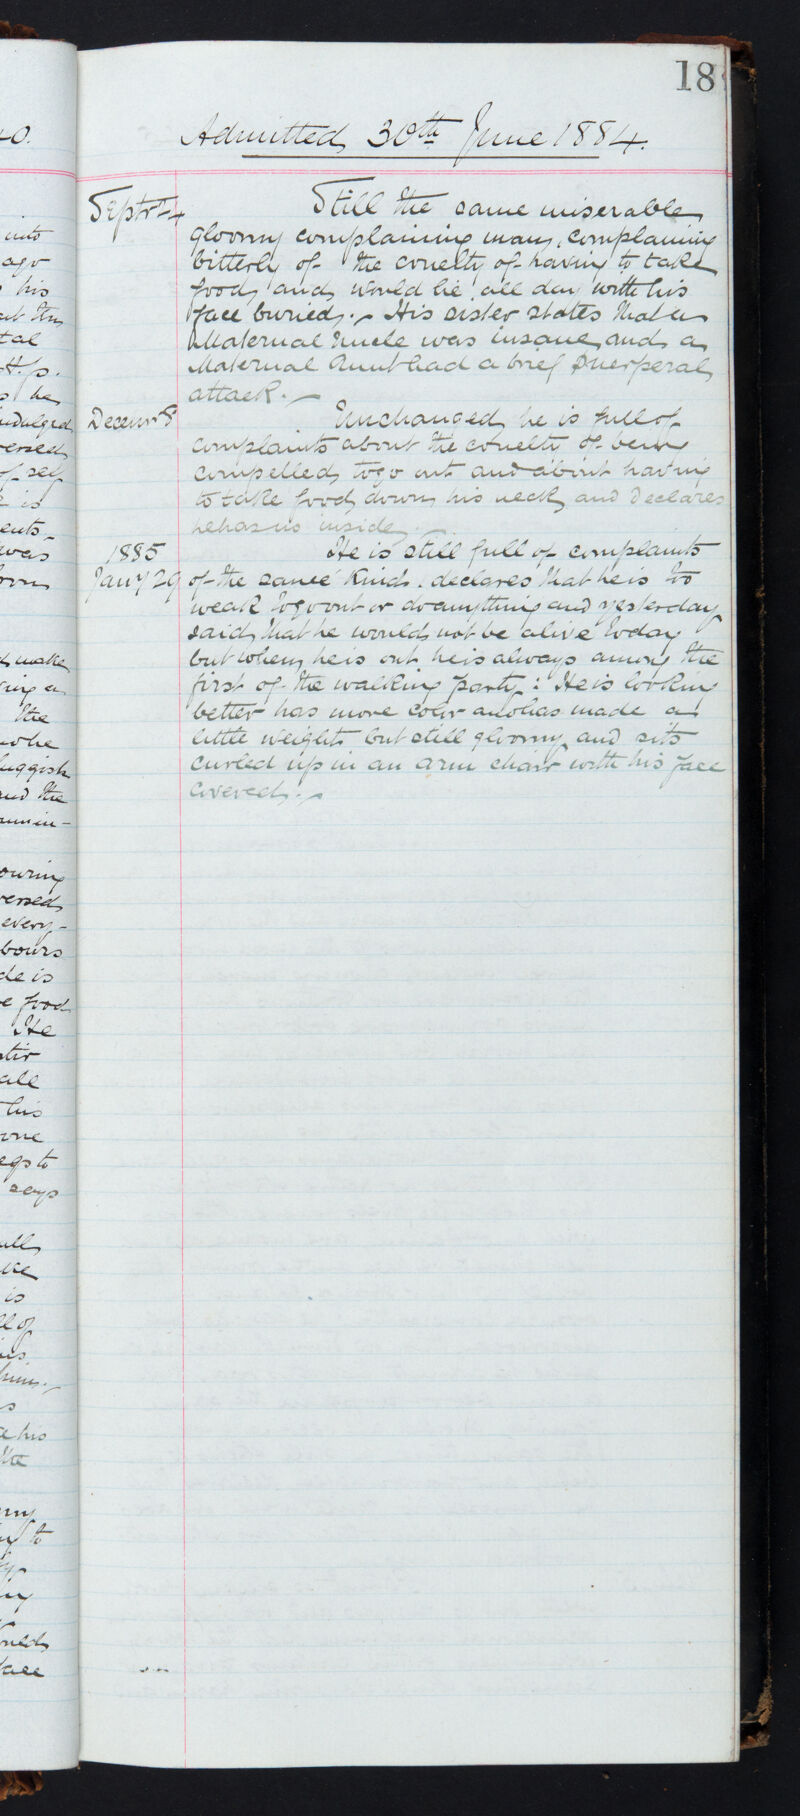 18
Admitted 30th June 1884.
Septr 4 Still the same miserable
gloomy complaining man, complaining
bitterly of the cruelty of having to take
food and would lie all day with his
face buried. His sister states that a
Maternal Uncle was insane and a
Maternal Aunt had a brief Puerperal
attack.
Decemr 8 Unchanged, he is full of
complaints about the cruelty of being
compelled to go out and about having
to take food down his neck and declares
he has no inside.
1885 He is still full of complaints
Jany 29 of the same kind. declares that he is to
weak to go out or do anything and yesterday
said that he would not be alive today
but when he is out he is always among the
first of the walking party: He is looking
better has more color and has made a
little weight but still gloomy and sits
curled up in an arm chair with his face
covered.
40.
into
ago
his
tal
H.p.
he
indulged
versed
of self
is
ents
was
make
ving a
the
who he
luggish
and the
owing
versed
every-
bours
de is
e food
He
his
one
egs to
says
is
his
the
to
face